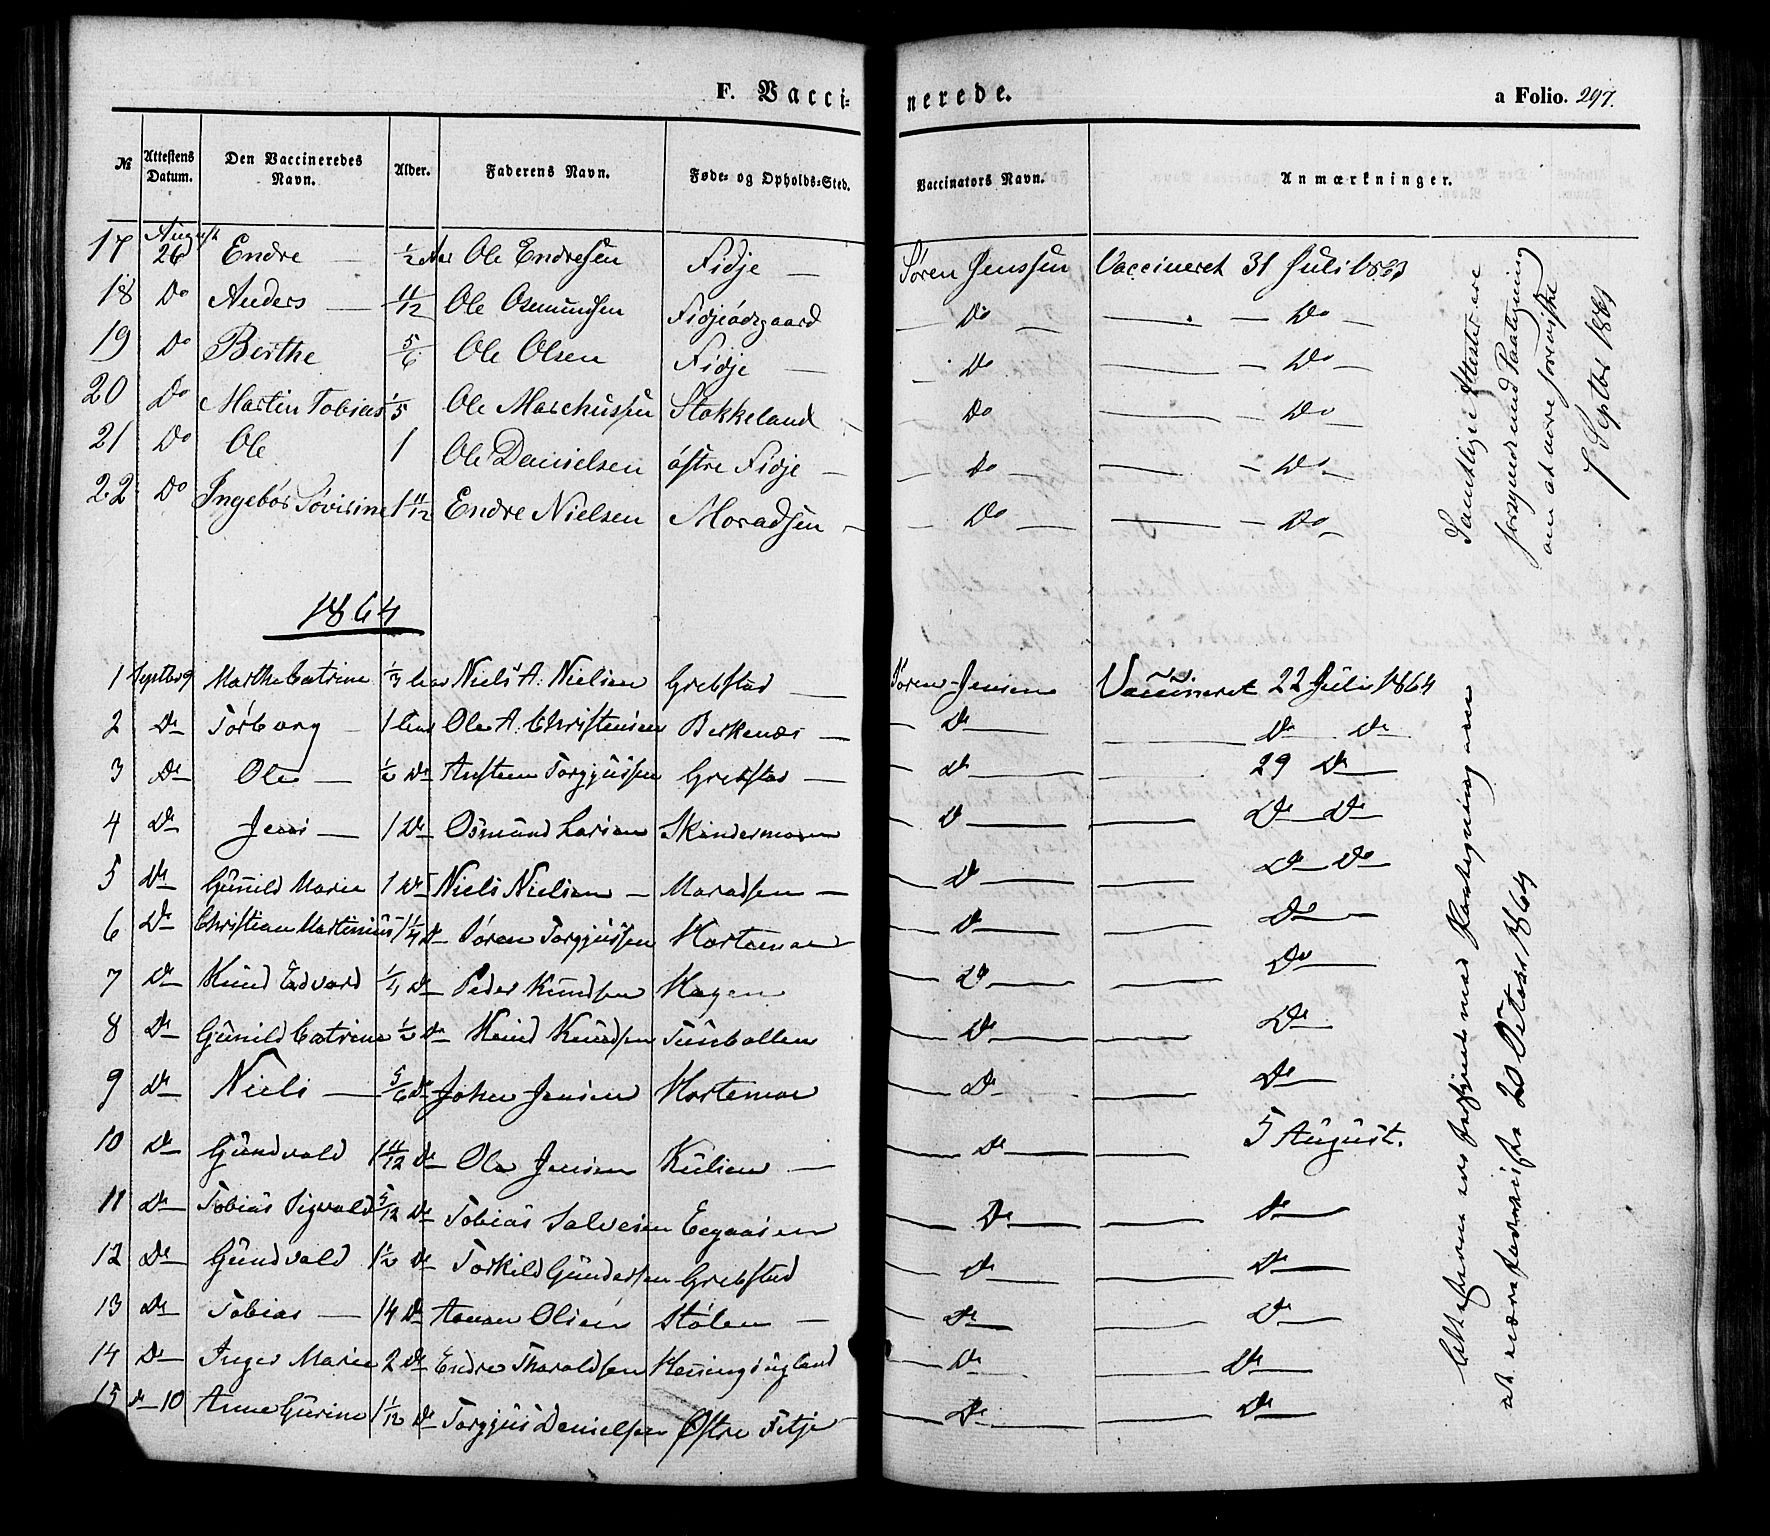 F. Vacci=nerede. a Folio. 297.
№ Attestens Datum. Den Vaccineredes Navn. Alder. Faderens Navn. Føde- og Opholds-Sted. Vaccinators Navn. Anmærkninger.
17 August 26 Endre — 1/2 Aar Ole Endresen Fidje — Søren Jenssen Vaccineret 31 Juli 1863
18 Do Anders — 11/12 Ole Osmundsen Fidjeødegaard — Do — — Do —
19 Do Berthe 5/6 Ole Olsen Fidje — — Do — — Do
20 Do Martin Tobias 1/5 Ole Marchussen Stokkeland — Do — — Do
21 Do Ole 1 Ole Danielsen østre Fidje — — Do — — Do —
22 Do Ingebor Søvirine 1 11/12 Endre Nielsen Moradsen — — Do — — Do —
Samtlige Attester ere
forsynede med Paategning
om at være foreviste
7 Septbr 1864
1864
1 Septbr 9 Marthe Catrine 1/3 Aar Niels A. Nielsen Grebstad — Søren Jensen Vaccineret 22 Juli 1864
2 Do Torborg — 1 Aar Ole A. Christensen Berkenæs — — Do — — Do Do
3 Do Ole — 1/2 Do Austeen Torgjussen Grebstad — — Do — — 29 Do —
4 Do Jens — 1 Do Osmund Larsen Skindermoen — Do — — Do Do
5 Do Gunild Marie 1 Do Niels Nielsen — Moradsen — — Do — — Do Do
6 Do Christian Martinius 1 1/4 Do Søren Torgjussen Hortemoe — Do — — Do —
7 Do Knud Edvard Do Peder Knudsen Hagen — Do — — Do —
8 Do Gunild Catrine 1/2 Do Knud Knudsen Tunballen — Do — — Do
9 Do Niels — 5/6 Do John Jensen Hortemoe — Do — — Do
10 Do Gundvald 1 11/12 Do Ole Jensen Kulien — — Do — — 5 August.
11 Do Tobias Sigvald 5/12 Do Tobias Salvesen Eegaasen — Do — — Do —
12 Do Gundvald 1 1/2 Do Torkild Gundersen Grebstad — Do — — Do —
13 Do Tobias — 14 Do Aanen Olsen Stølen — — Do — — Do —
14 Do Inger Marie 2 Do Endre Tharaldsen Høningsugland — Do — — Do —
15 Do 10 Anne Gurine 1 1/12 Do Torgjus Danielsen Østre Fitje — Do — — Do —
Attesterne ere forsynede med Paategning om
at være foreviste 20de Octobr 1864